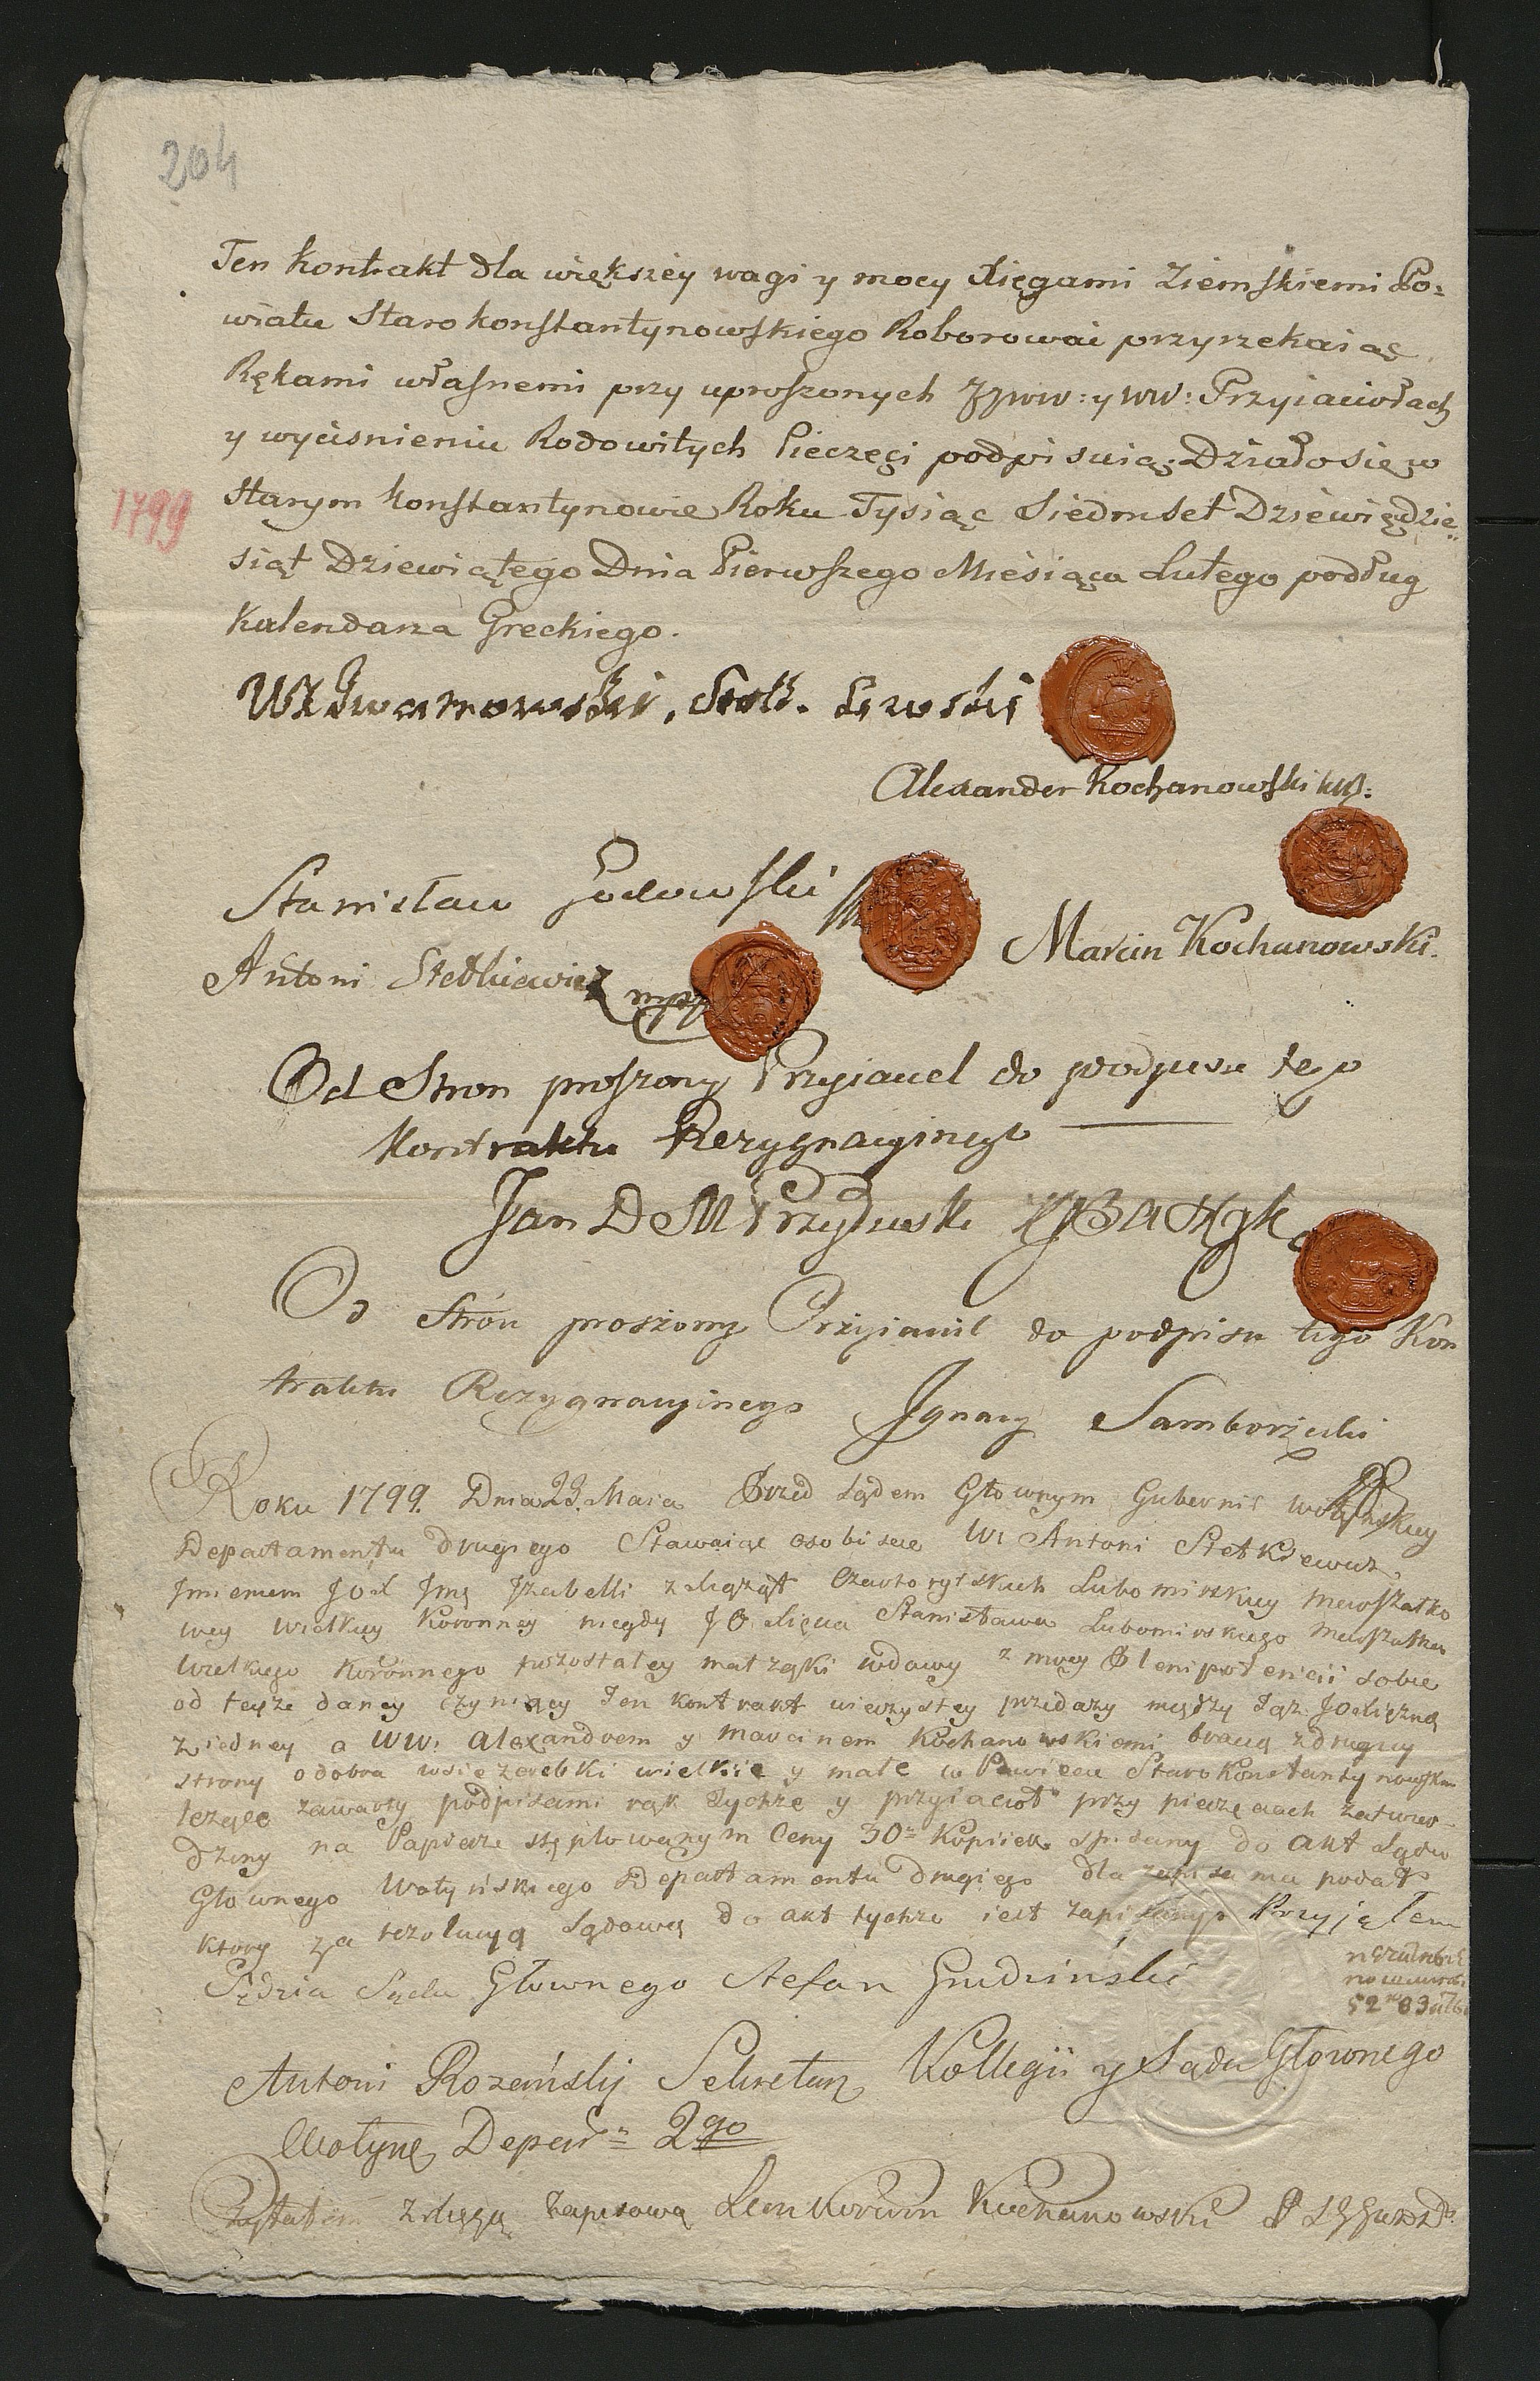 204
Ten kontrakt dla większey wagi y mocy Xięgami Ziemskiemi Po:
wiatu Starokonstantynowskiego Roborować przyrzekaiąc
Rękami własnemi przy uproszonych JJWW: y WW: Przyiaciołach
y wyciśnieniu Rodowitych Pieczęci podpisuią. Działo się w
1799
Starym Konstantynowie Roku Tysiąc Siedmset Dziewięćdzie„
siąt Dziewiątego Dnia Pierwszego Miesiąca Lutego podług
Kalendarza Greckiego.
Alexander Kochanowski mp:
Stanisław
Marcin Kochanowski.
Antoni Stetkiewicz mpp
Od Stron proszony Przyiaciel do podpisu tego
Kontraktu Rezygnacyinego
Jan D M
Od Stron proszony Przyiaciel do podpisu tego Kon
traktu Rezygnacyinego Ignacy Samborzecki
Roku 1799. Dnia 23. Maia Przed Sądem Głownym Gubernii Wołynskiey
Departamentu drugiego Stawaiąc osobiscie Wr Antoni Stetkiewicz
Imieniem JO Imę Izabelli z Xiążąt Czartoryskich Lubomirskiey Marszałko
wey Wielkiey Koronney niegdy JO Xięcia Stanisława Lubomirskiego Marszałka
Wielkiego Koronnego pozostałey małżąki wdowy z mocy Plenipotencii sobie
od teyże daney czyniący Ten kontrakt wieczystey przedaży między Tąż JO Xiężną
z iedney a WW. Alexandrem y Marcinem Kochanowskiemi bracią z drugiey
strony o dobra wsie Zerebki wielkie y małe w Powiecie Starokonstantynowskim
leżące zawarty podpisami rąk Tychże y przyiacioł przy pieczęciach zatwier-
dzony na Papierze stęplowanym Ceny 30 Kopiiek spisany do Akt Sądu
Głownego Wołyńskiego Departamentu drugiego dla zapisania podał
ktory za rezolucyą Sądową do akt tychże iest zapisany Przyjąłem
Sędzia Sądu Głownego Stefan Grudziński
Antoni Rozański Sekretarz Kollegii y Sądu Głownego
Wołyn Depart 2go
Czytałem z Xięgą Zapisową Kochanowski